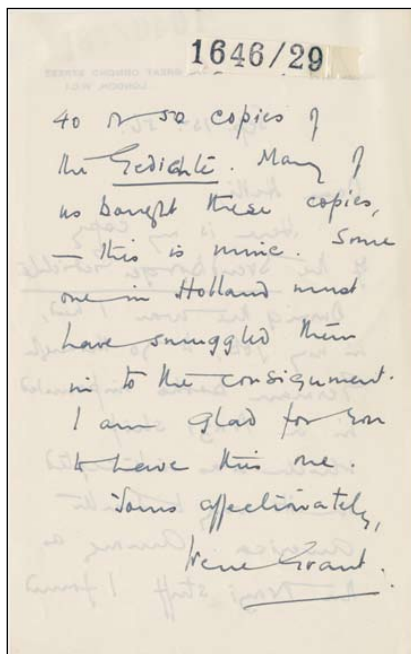 1646/29
40 or 50 copies of
the Gedichte. Many of
us bought these copies,
— this is mine. Some
one in Holland must
have smuggled them
in to the consignment.
I am glad for you
to have this one.
Yours affectionately,
Irene Grant.